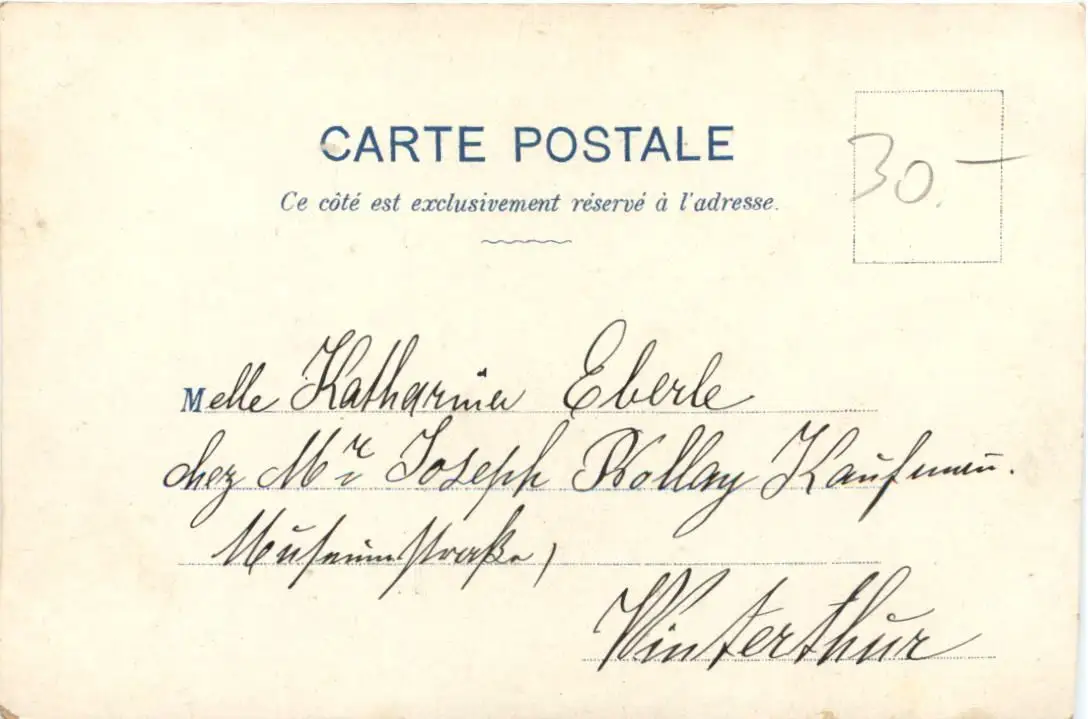 CARTE POSTALE
Ce côté est exclusivement réservé à l'adresse.
30.—
Melle Katharina Eberle
chez Mr Joseph Kaufmann.
Museumstraße,
Winterthur